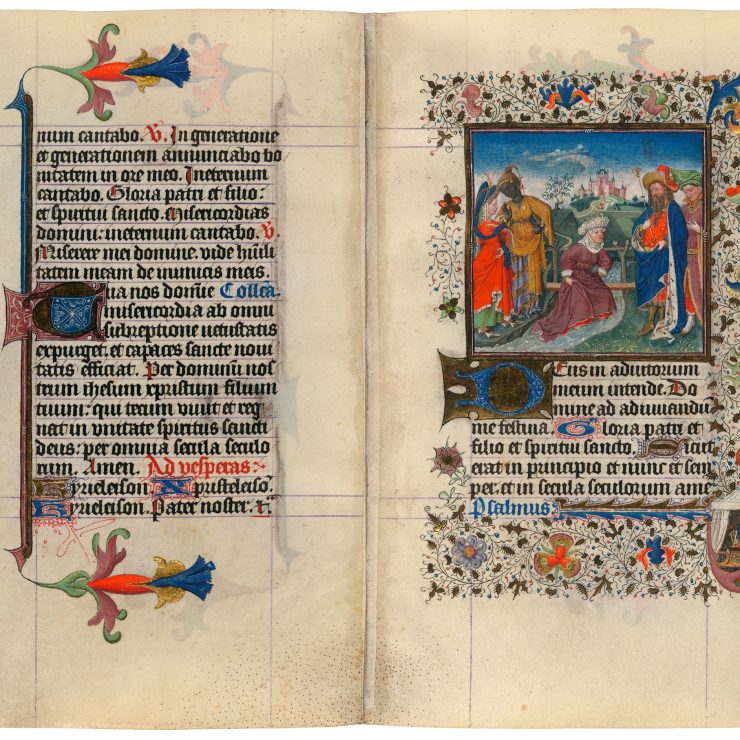 num cantabo. V. In generatione
et generationem annunciabo ve
ritatem in ore meo. Ineternum
cantabo. Gloria patri et filio:
et spiritui sancto. Misericordias
domini: ineternum cantabo. V.
Miserere mei domine. vide humili
tatem meam de inimicis meis.
Tua nos domine Collecta
misericordia ab omni
subreptione uetustatis
expurget. et capaces sancte noui
tatis efficiat. Per dominum nos
trum ihesum xpristum filium
tuum: qui tecum viuit et reg
nat in vnitate spiritus sancti
deus: per omnia secula seculo
rum. Amen. Ad vesperas:
Kyrieleison Xpristeleison
Kyrieleison. Pater noster.
Deus in adiutorium
meum intende. Do
mine ad adiuuandum
me festina. Gloria patri et
filio et spiritui sancto. Sicut
erat in principio et nunc et sem
per. et in secula seculorum ame
Psalmus